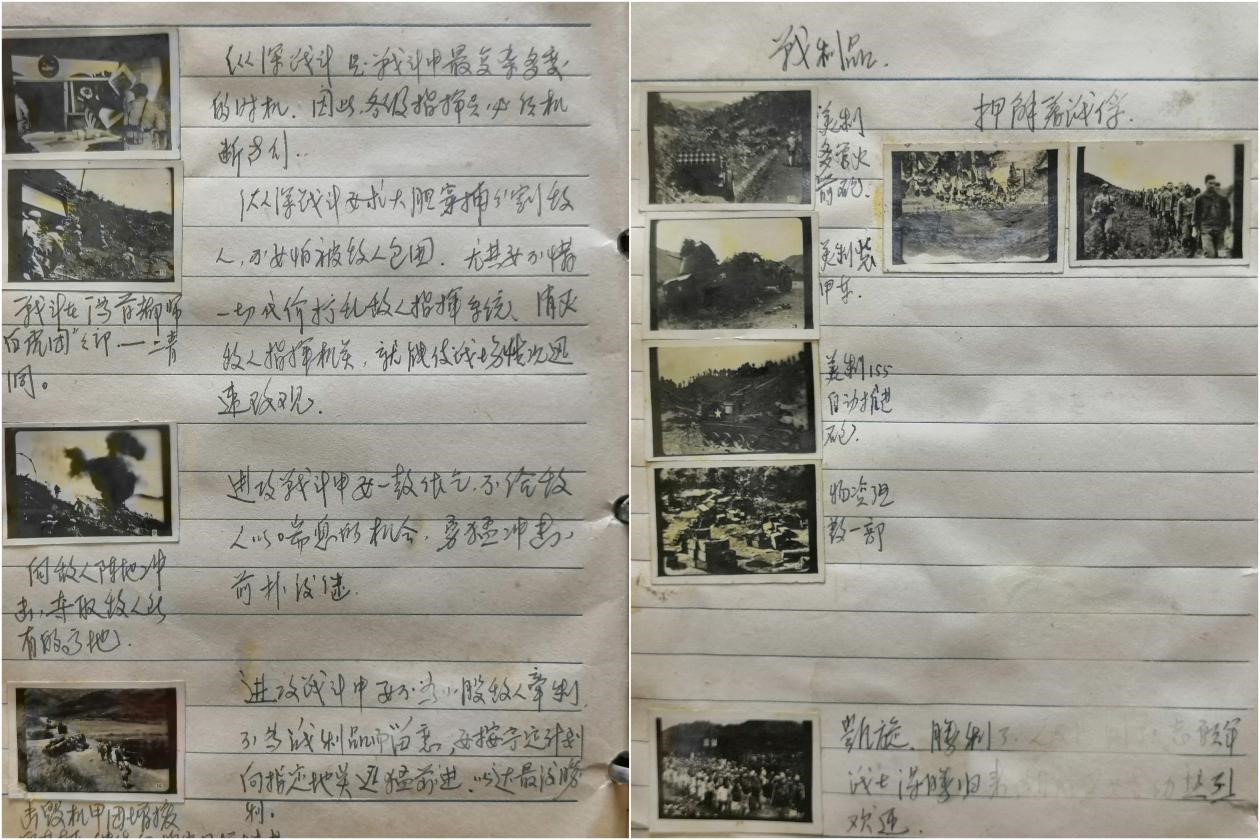 纵深战斗是战斗中最复杂多变
的时机。因此,各级指挥员必须机
断专行..
纵深战斗要求大胆穿插分割敌
人,不要怕被敌人包围。尤其要不惜
一切代价打乱敌人指挥系统、消灭
敌人指挥机关,就能使战场情况迅
速改观.
战斗在"伪首都师
白虎团"之部——二青
洞。
进攻战斗中要一鼓作气,不给敌
人以喘息的机会,勇猛冲击,
前扑后继.
向敌人阵地冲
击,夺取敌人所
有的高地.
进攻战斗中要不为小股敌人牵制,
不为战利品而留恋,要按预定计划
向指定地点迅猛前进,以达最后胜
利.
击毁机甲团增援
战利品.
美制
多管火
箭炮.
美制装
甲车.
美制155
自动推进
炮.
物资组
数一部
押解着战俘.
凯旋,胜利了,志愿军
战士得胜归来热烈
欢迎.